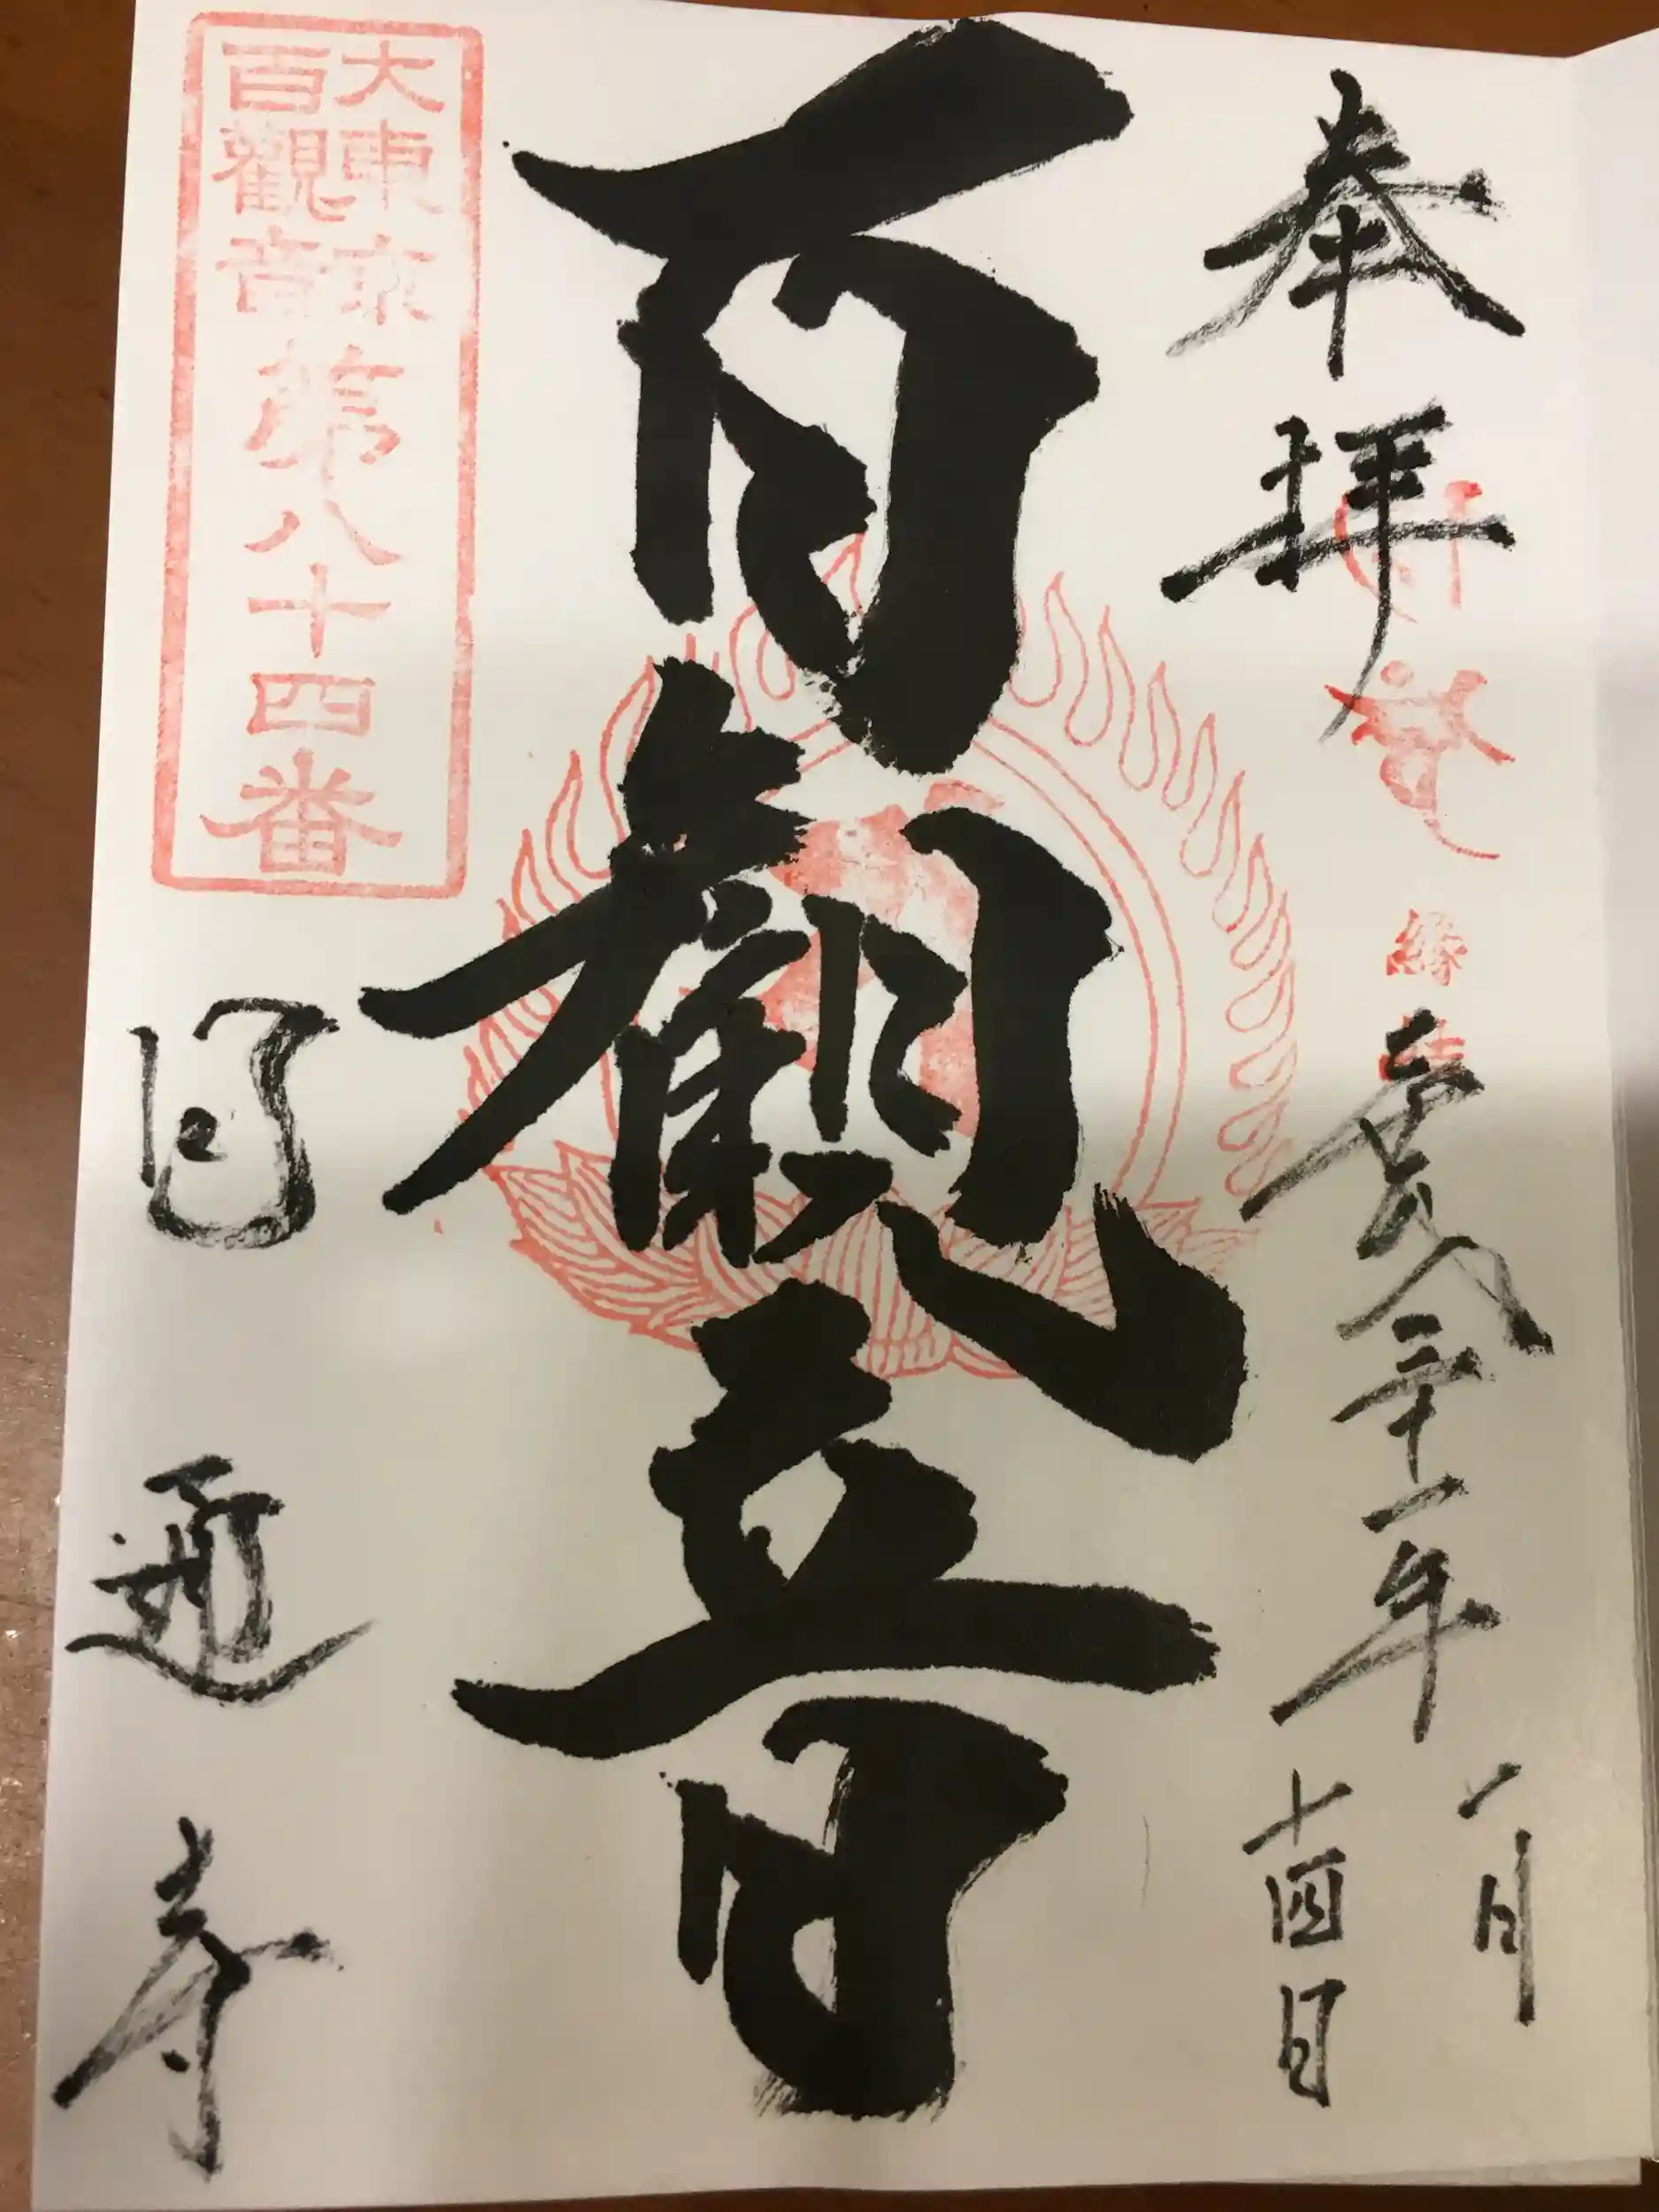 奉拝
三十一年
一月
十四日
百観音
大東京
百觀音
第八十四番
円通寺
縁